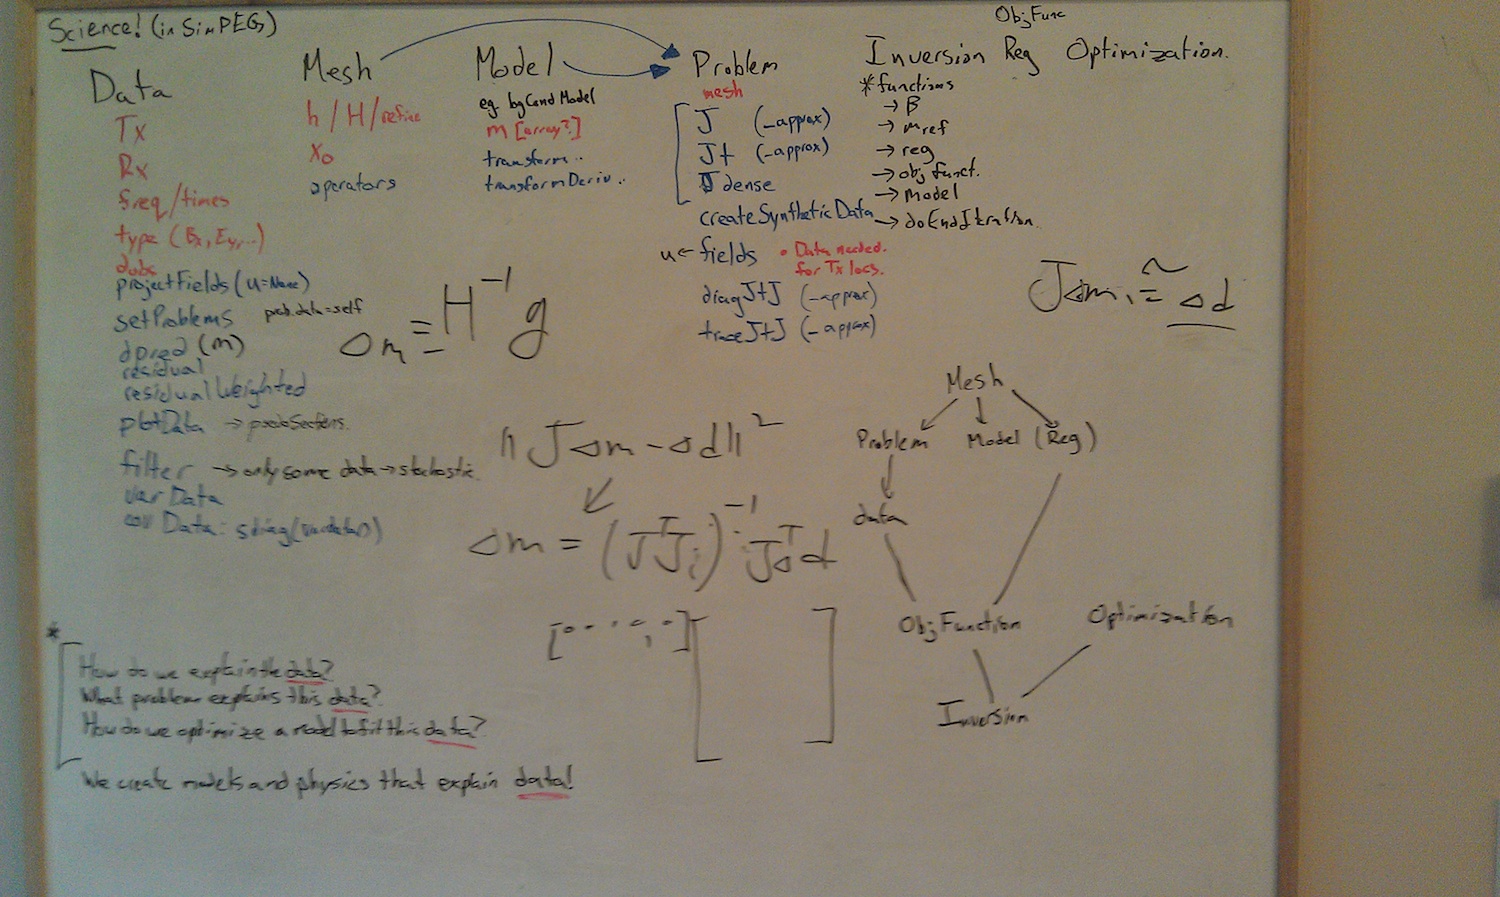 Science! (in SimPEG)
Data
Tx
Rx
freq/times
type (Bx, Ey,...)
dobs
projectFields (u=None)
setProblems prob.data=self
dpred (m)
residual
residualWeighted
plotData → pseudoSections.
filter → only some data → stochastic.
var Data
cov Data: sdiag(vardata)
Mesh
h / H / refine
x₀
operators
Model
eg. bgCond Model
m [array?]
transform..
transformDeriv..
Problem
mesh
J (-approx)
Jt (-approx)
J dense
createSyntheticData
u ← fields
• Data needed.
for Tx locs.
diagJtJ (-approx)
traceJtJ (-approx)
ObjFunc
Inversion Reg Optimization.
* functions
→ β
→ mref
→ reg
→ obj funct.
→ model
→ doEndIteration.
Δm = H⁻¹ g
JΔm, ≃ Δd
‖JΔm - Δd‖²
Δm = (JᵀJ)⁻¹ JᵀΔd
Mesh
Problem Model (Reg)
data
ObjFunction Optimization
Inversion
*
How do we explain the data?
What problem explains this data?
How do we optimize a model to fit this data?
We create models and physics that explain data!